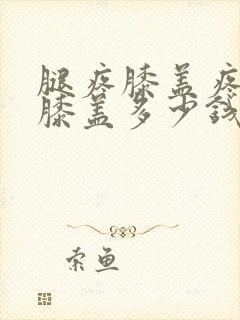 腿疼膝盖疼
膝盖多少钱
索鱼